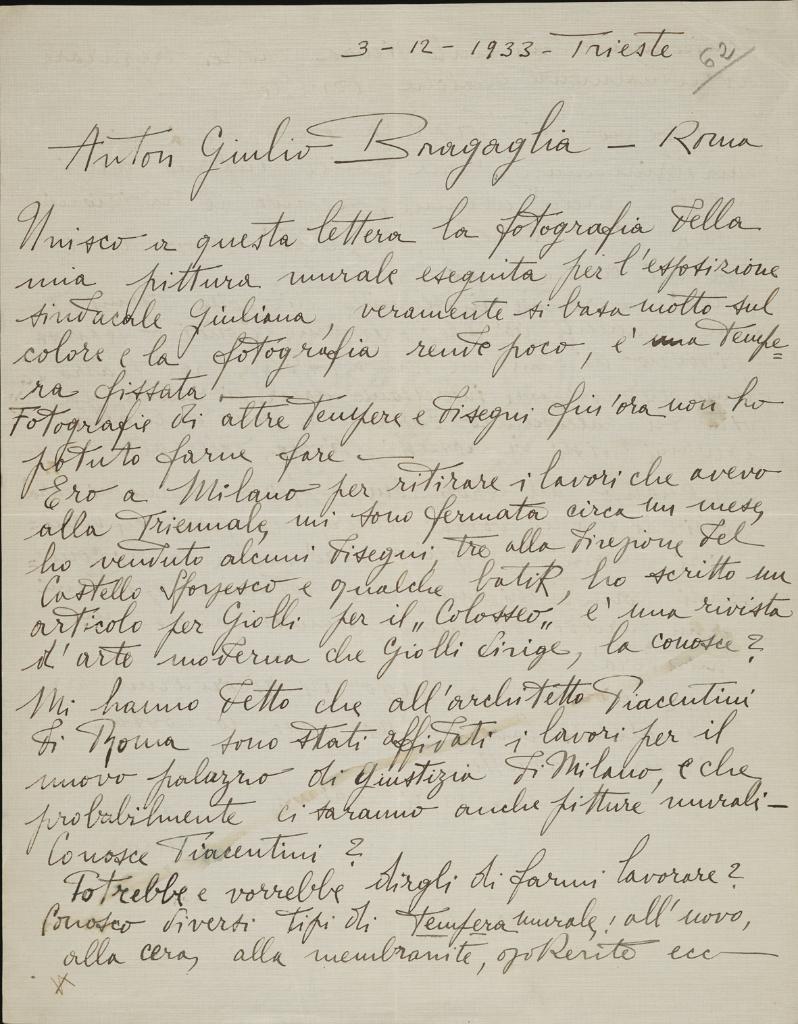 3-12-1933 - Trieste
62/
Anton Giulio Bragaglia - Roma
Unisco a questa lettera la fotografia della
mia pittura murale eseguita per l'esposizione
sindacale Giuliana, veramente si basa molto sul
colore e la fotografia rende poco, é una tempe=
ra fissata.
Fotografie di altre tempere e disegni fin'ora non ho
potuto farne fare -
Ero a Milano per ritirare i lavori che avevo
alla Triennale, mi sono fermata circa un mese,
ho venduto alcuni disegni, tre alla direzione del
Castello Sforzesco e qualche batik, ho scritto un
articolo per Giolli per il „Colosseo„ é una rivista
d'arte moderna che Giolli dirige, la conosce?
Mi hanno detto che all'architetto Piacentini
di Roma sono stati affidati i lavori per il
nuovo palazzo di giustizia di Milano, e che
probabilmente ci saranno anche pitture murali -
Conosce Piacentini?
Potrebbe e vorrebbe dirgli di farmi lavorare?
Conosco diversi tipi di tempera murale: all'uovo,
alla cera, alla membranite, ozokerite ecc
x